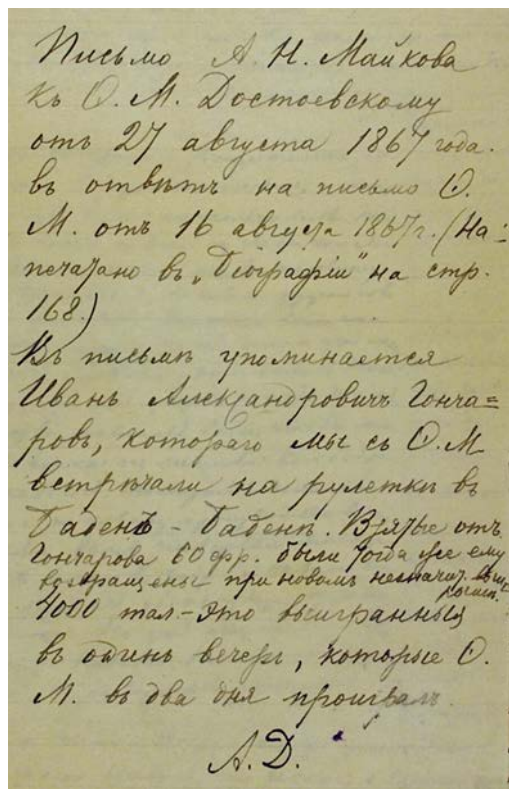 Письмо А. Н. Майкова
къ Ѳ. М. Достоевскому
отъ 27 августа 1867 года.
въ отвѣтъ на письмо Ѳ.
М. отъ 16 августа 1867 г. (На-
печатано въ „Біографіи" на стр.
168.)
Въ письмѣ упоминается
Иванъ Александровичъ Гонча=
ровъ, котораго мы съ Ѳ. М
встрѣчали на рулеткѣ въ
Баденъ - Баденѣ. Взятые отъ
Гончарова 60 фр. были тогда же ему
возвращены при новомъ незначит.
4000 тал - это выигранныя
въ одинъ вечеръ, которые Ѳ.
М. въ два дня проигралъ.
А. Д.